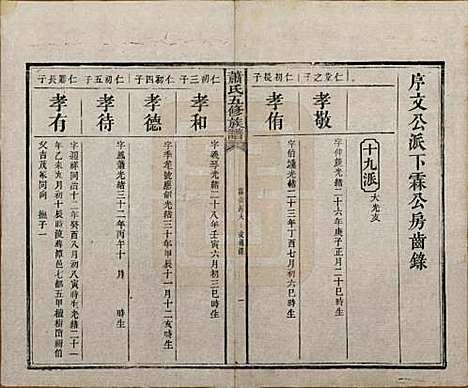 序文公派下霖公房齒錄
十九派
大光支
仁堂之子
孝敬
字仲銕光緒二十六年庚子正月二十巳時生
仁初長子
孝侑
字伯議光緒二十三年丁酉七月初六巳時生
蕭氏五修族譜
一
仁初三子
孝和
字義光緒二十八年壬寅六月初三巳時生
仁初四子
孝德
字季光號應韶光緒三十年甲辰十一月十二亥時生
仁初五子
孝待
字鳳蕭光緒三十二年丙午十月 時生
仁蕭長子
孝有
字祥同治十二年癸酉八月初八寅時生光緒二十一
年乙未九月初十長時歿葬潭邑
父吉茂冢同向 撫子一